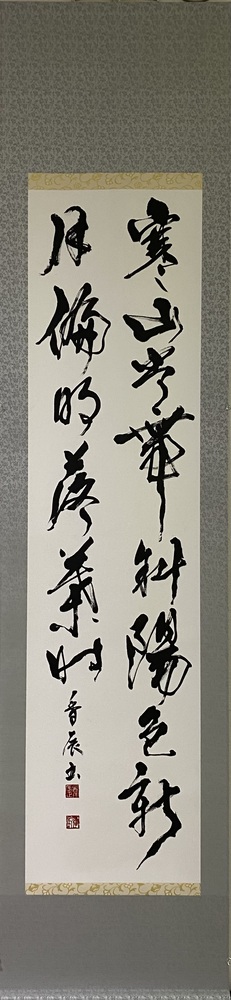 寒山常帶斜陽色新
月偏明落葉時
辰書